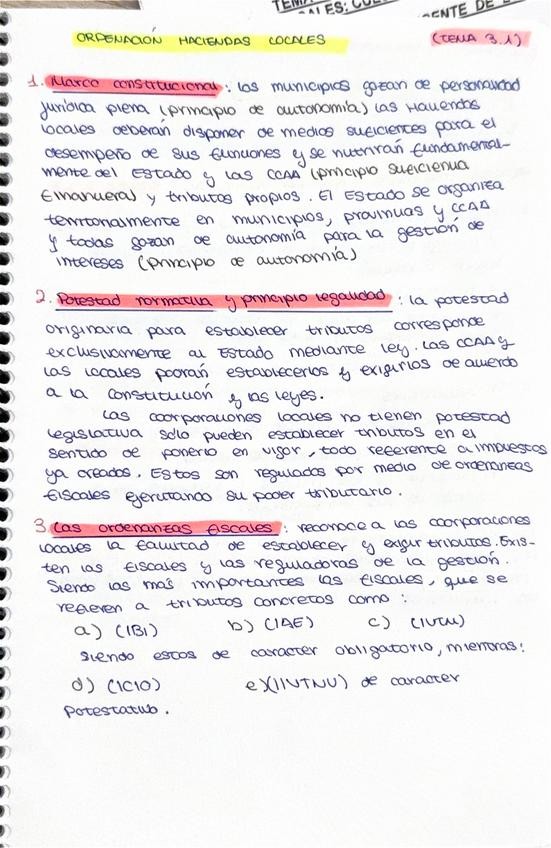 TEMA
ALES: CUE
GENTE DE L
ORDENACIÓN HACIENDAS LOCALES (TEMA 3.1)
1. Marco constitucional: los municipios gozan de personalidad
jurídica plena (principio de autonomía) Las Haciendas
locales deberán disponer de medios suficientes para el
desempeño de sus funciones y se nutrirán fundamental-
mente del Estado y las CCAA (principio suficiencia
financiera) y tributos propios. El Estado se organiza
territorialmente en municipios, provincias y CCAA
y todas gozan de autonomía para la gestión de
intereses (principio de autonomía)
2. Potestad normativa y principio legalidad: la potestad
originaria para establecer tributos corresponde
exclusivamente al Estado mediante ley. Las CCAA y
las locales podrán establecerlos y exigirlos de acuerdo
a la constitución y las leyes.
Las coorporaciones locales no tienen potestad
legislativa sólo pueden establecer tributos en el
sentido de ponerlo en vigor, todo referente a impuestos
ya creados. Estos son regulados por medio de ordenanzas
fiscales ejercitando su poder tributario.
3. Las ordenanzas fiscales: reconoce a las coorporaciones
locales la facultad de establecer y exigir tributos. Exis-
ten las fiscales y las reguladoras de la gestión.
Siendo las más importantes las fiscales, que se
refieren a tributos concretos como:
a) (IBI) b) (IAE) c) (IVTM)
siendo estos de caracter obligatorio, mientras:
d) (ICIO) e) (IIVTNU) de caracter
potestativo.